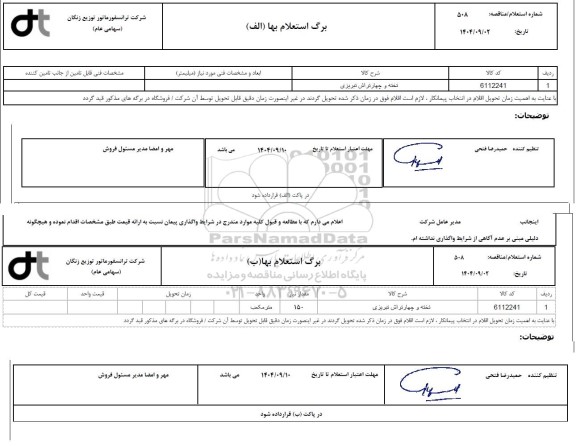 شرکت ترانسفورماتور توزیع زنگان
(سهامی عام)
برگ استعلام بها (الف)
شماره استعلام/مناقصه: ۵۰۸
تاریخ: ۱۴۰۴/۰۹/۰۲
ردیف کد کالا شرح کالا ابعاد و مشخصات فنی مورد نیاز (میلیمتر) مشخصات فنی قابل تامین از جانب تامین کننده
1 6112241 تخته و چهارتراش تبریزی
با عنایت به اهمیت زمان تحویل اقلام در انتخاب پیمانکار ، لازم است اقلام فوق در زمان ذکر شده تحویل گردند در غیر اینصورت زمان دقیق قابل تحویل توسط آن شرکت / فروشگاه در برگه های مذکور قید گردد
توضیحات:
تنظیم کننده حمیدرضا فتحی
مهلت اعتبار استعلام تا تاریخ ۱۴۰۴/۰۹/۱۰ می باشد
مهر و امضا مدیر مسئول فروش
در پاکت (الف) قرارداده شود
اینجانب مدیر عامل شرکت اعلام می دارم که با مطالعه و قبول کلیه موارد مندرج در شرایط واگذاری پیمان نسبت به ارائه قیمت طبق مشخصات اقدام نموده و هیچگونه
دلیلی مبنی بر عدم آگاهی از شرایط واگذاری نداشته ام.
شرکت ترانسفورماتور توزیع زنگان
(سهامی عام)
برگ استعلام بها(ب)
شماره استعلام/مناقصه: ۵۰۸
تاریخ: ۱۴۰۴/۰۹/۰۲
ParsNamadData
پایگاه اطلاع رسانی مناقصه و مزایده
۰۲۱-۸۸۳۴۹۶۷۰-۵
ردیف کد کالا شرح کالا مقدار نیاز واحد زمان تحویل قیمت واحد قیمت کل
1 6112241 تخته و چهارتراش تبریزی ۱۵۰ مترمکعب
با عنایت به اهمیت زمان تحویل اقلام در انتخاب پیمانکار ، لازم است اقلام فوق در زمان ذکر شده تحویل گردند در غیر اینصورت زمان دقیق قابل تحویل توسط آن شرکت / فروشگاه در برگه های مذکور قید گردد
توضیحات:
تنظیم کننده حمیدرضا فتحی
مهلت اعتبار استعلام تا تاریخ ۱۴۰۴/۰۹/۱۰ می باشد
مهر و امضا مدیر مسئول فروش
در پاکت (ب) قرارداده شود